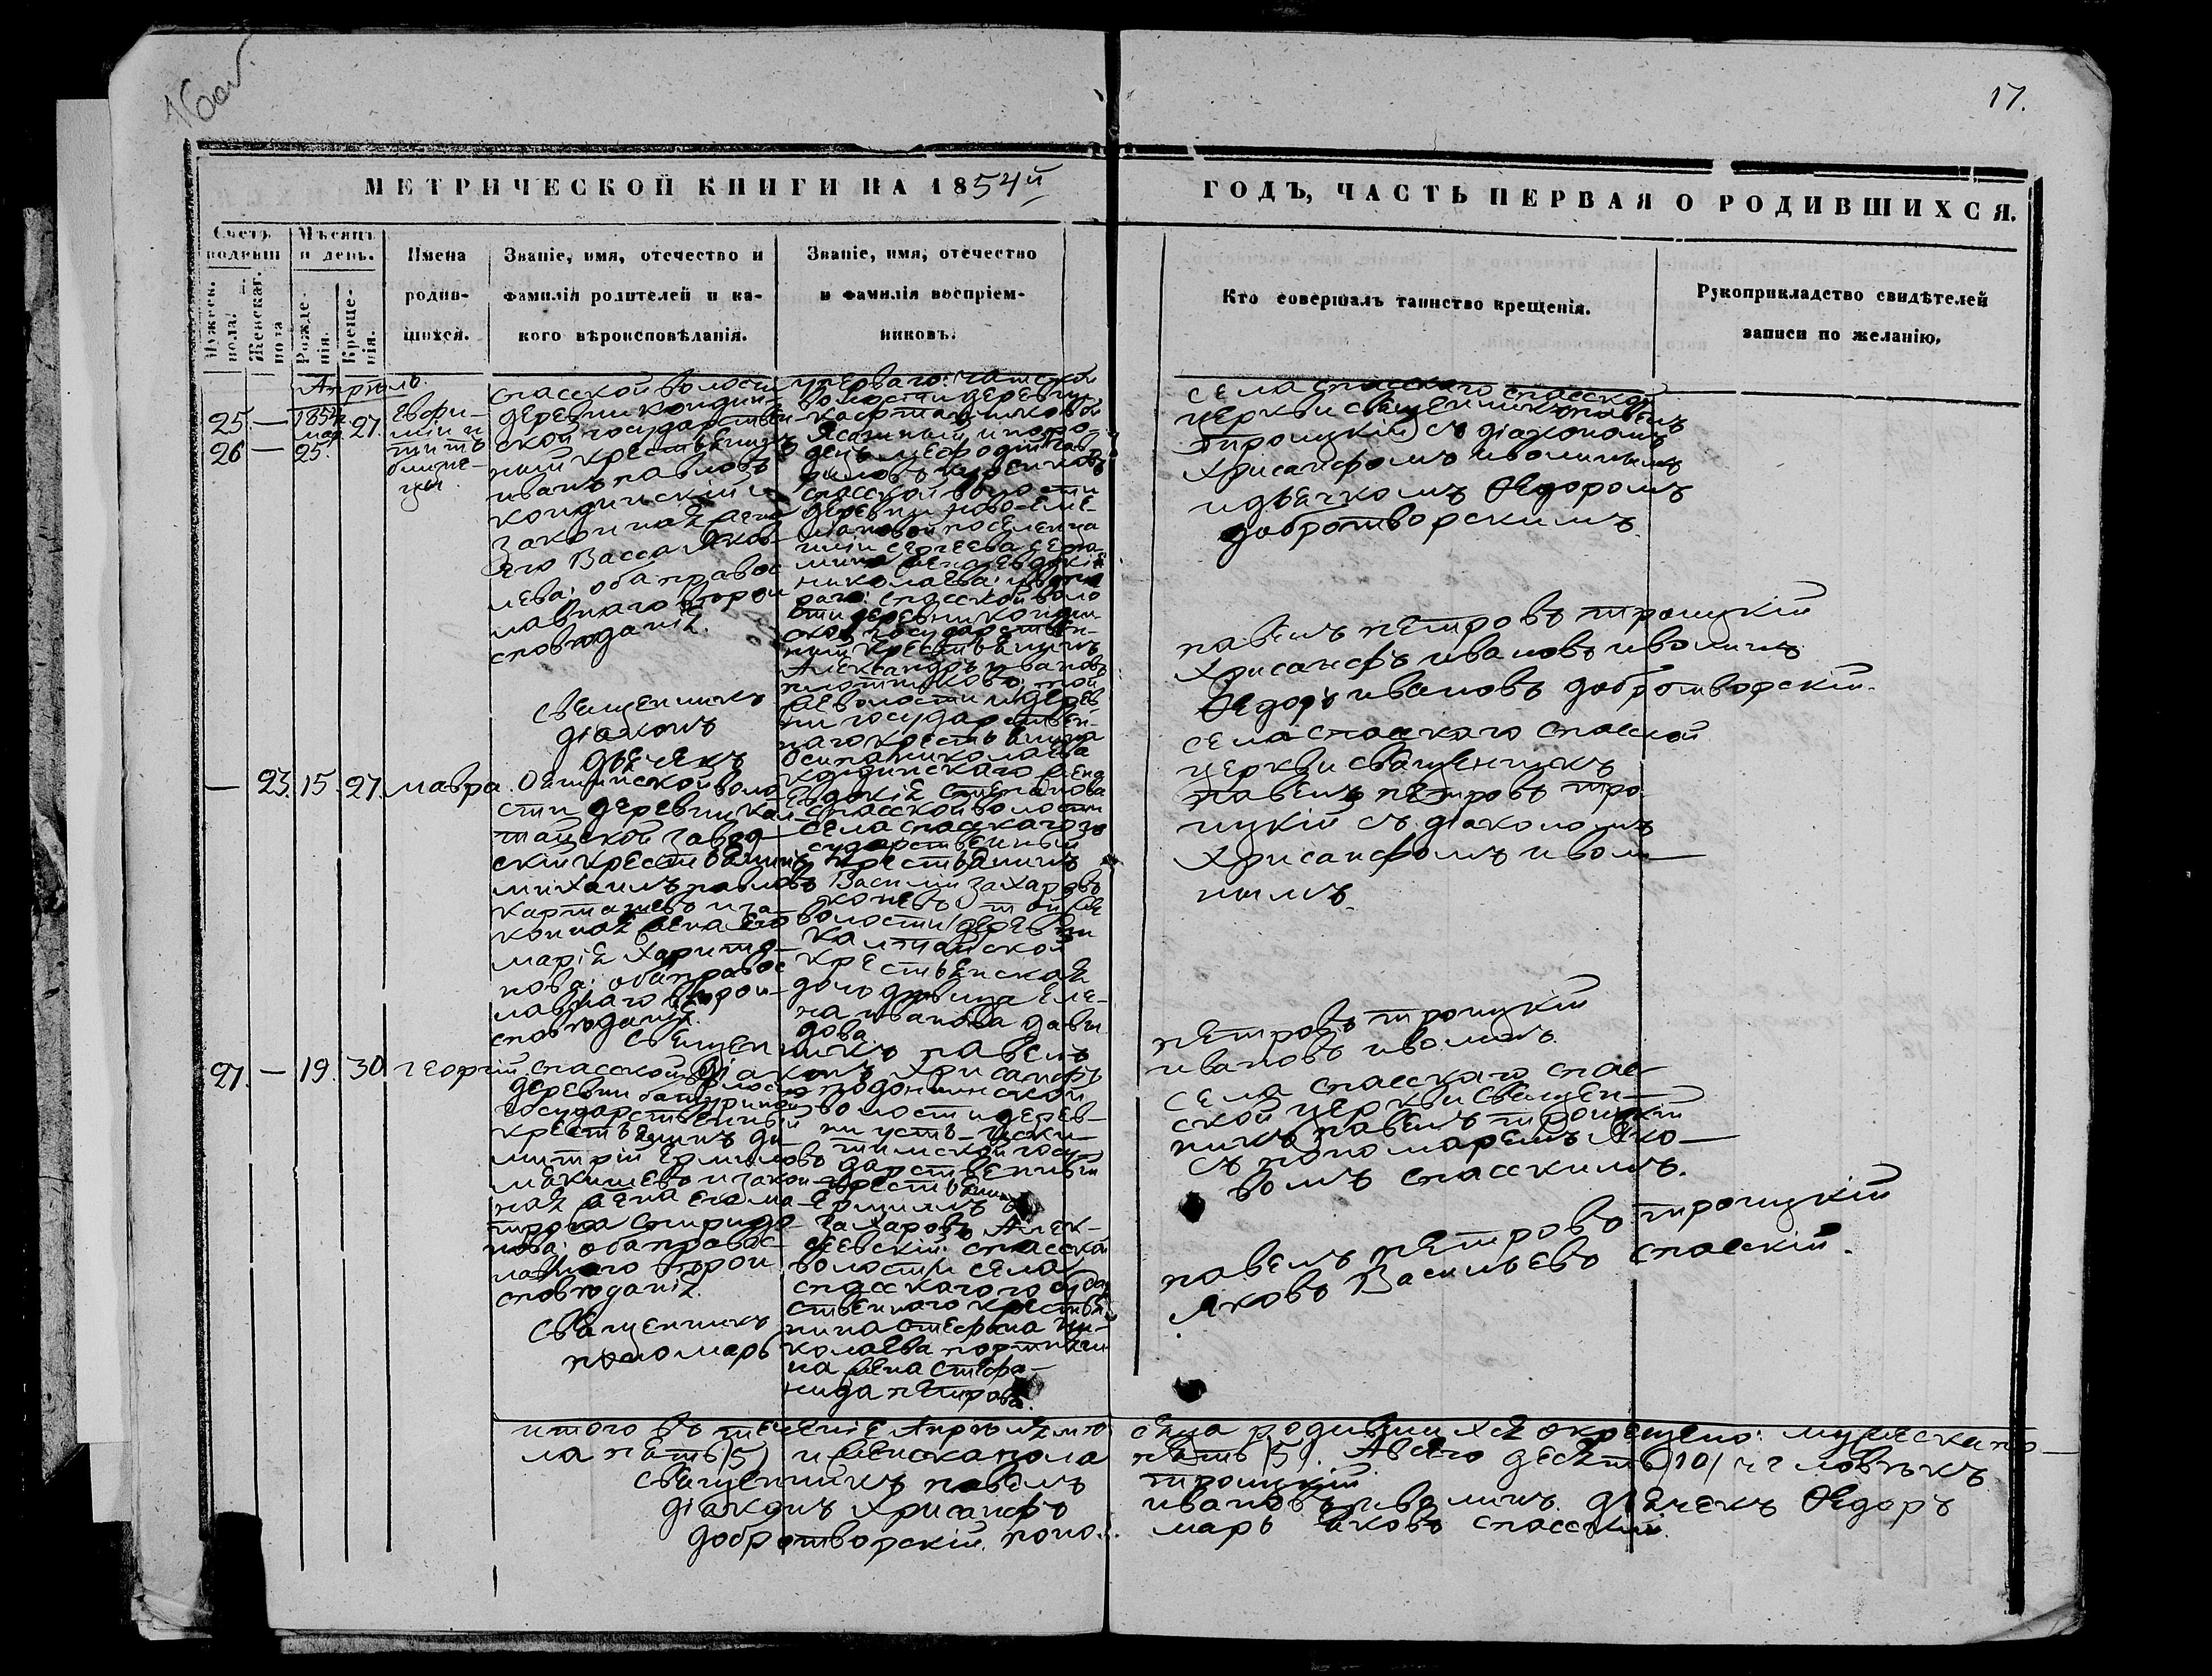 16 об.
17.
МЕТРИЧЕСКОЙ КНИГИ НА 1854й
ГОДЪ, ЧАСТЬ ПЕРВАЯ О РОДИВШИХСЯ.
Счетъ родивш
Мужеск. пола.
Женскаг. пола
Мѣсяцъ и день.
Рожде-
нія.
Креще-
нія.
Имена
родив-
шихся.
Званіе, имя, отечество и
фамилія родителей и ка-
кого вѣроисповѣданія.
Званіе, имя, отечество
и фамилія воспріем-
никовъ.
Кто совершалъ таинство крещенія.
Рукоприкладство свидѣтелей
записи по желанію,
Апрѣль.
25. — 1854 мар. 27.
26 — 25.
Евфи-
мій и
титъ
близне-
цы.
спасской волости
деревни кондин-
ской государствен-
ный крестьянинъ
иванъ павловъ
кондинскій и
законная жена
его Васса Яков-
лева: оба правос
лавнаго вѣрои
сповѣданія.
Священникъ
діаконъ
дьячекъ
у перваго:
волости деревни
Ясашный
спасской волости
деревни ново-еле-
поселенца
сергеева
жена евдокія
николаева: у вто
раго: спасской воло
сти деревни кондин
ской государствен-
ный крестьянинъ
Александръ ивановъ
плотниковъ: той
же волости и дерев
ни государствен-
наго крестьянина
Осипа николаева
кондинскаго жена
Евдокія степанова
села спасскаго спасской
церкви священникъ павелъ
троицкій съ діакономъ
хрисанфомъ иволинымъ
и дьячкомъ Ѳедоромъ
добротворскимъ.
павелъ петровъ троицкій
хрисанфъ ивановъ иволинъ
Ѳедоръ ивановъ добротворскій.
— 23. 15. 27. мавра.
волo
сти деревни кал
тайской завод-
скій крестьянинъ
михаилъ павловъ
карташевъ и за-
конная жена его
марія харито-
нова: оба правос
лавнаго вѣрои-
сповѣданія.
спасской волости
села спасскаго го
сударственный
крестьянинъ
Василій захаровъ
той же
волости деревни
калтайской
крестьянская
дочь дѣвица Еле-
на иванова давы
дова.
села спасскаго спасской
церкви священникъ
павелъ петровъ тро
ицкій съ діакономъ
хрисанфомъ иволи—
нымъ.
Священникъ павелъ
діаконъ хрисанфъ
петровъ троицкій
ивановъ иволинъ.
27. — 19. 30. георгій.
спасской волости
деревни батуриной
государственный
крестьянинъ ди-
митрій Ермиловъ
и закон-
ная жена его ма-
трона спиридо-
нова: оба правос-
лавнаго вѣрои
сповѣданія.
Священникъ
пономарь
волости дерев-
ни усть-
госу-
дарственный
крестьянинъ
захаровъ Алек-
сеевскій: спасской
волости села
спасскаго государ
ственнаго крестья
нина стефана ни-
колаева портняги
на жена стефа-
нида петрова.
села спасскаго спас-
ской церкви священ—
никъ павелъ троицкій
съ пономаремъ Яко—
вомъ спасскимъ.
павелъ петровъ троицкій
Яковъ Васильевъ спасскій.
итого въ теченіе Апрѣля мѣ
сяца родившихся окрещено: мужеска по—
ла пять (5) и женска пола
пять (5). А всего десять (10) человѣкъ.
Священникъ павелъ
троицкій
діаконъ Хрисанфъ
ивановъ иволинъ. дьячекъ Ѳедоръ
добротворскій. поно-
марь Яковъ спасскій.